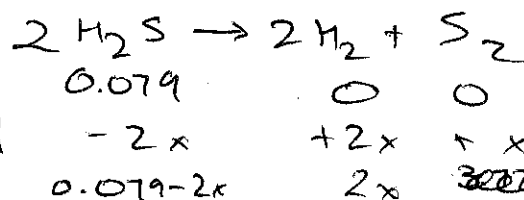 2 H₂S → 2H₂ + S₂
0.079 0 0
- 2x +2x + x
0.079-2x 2x